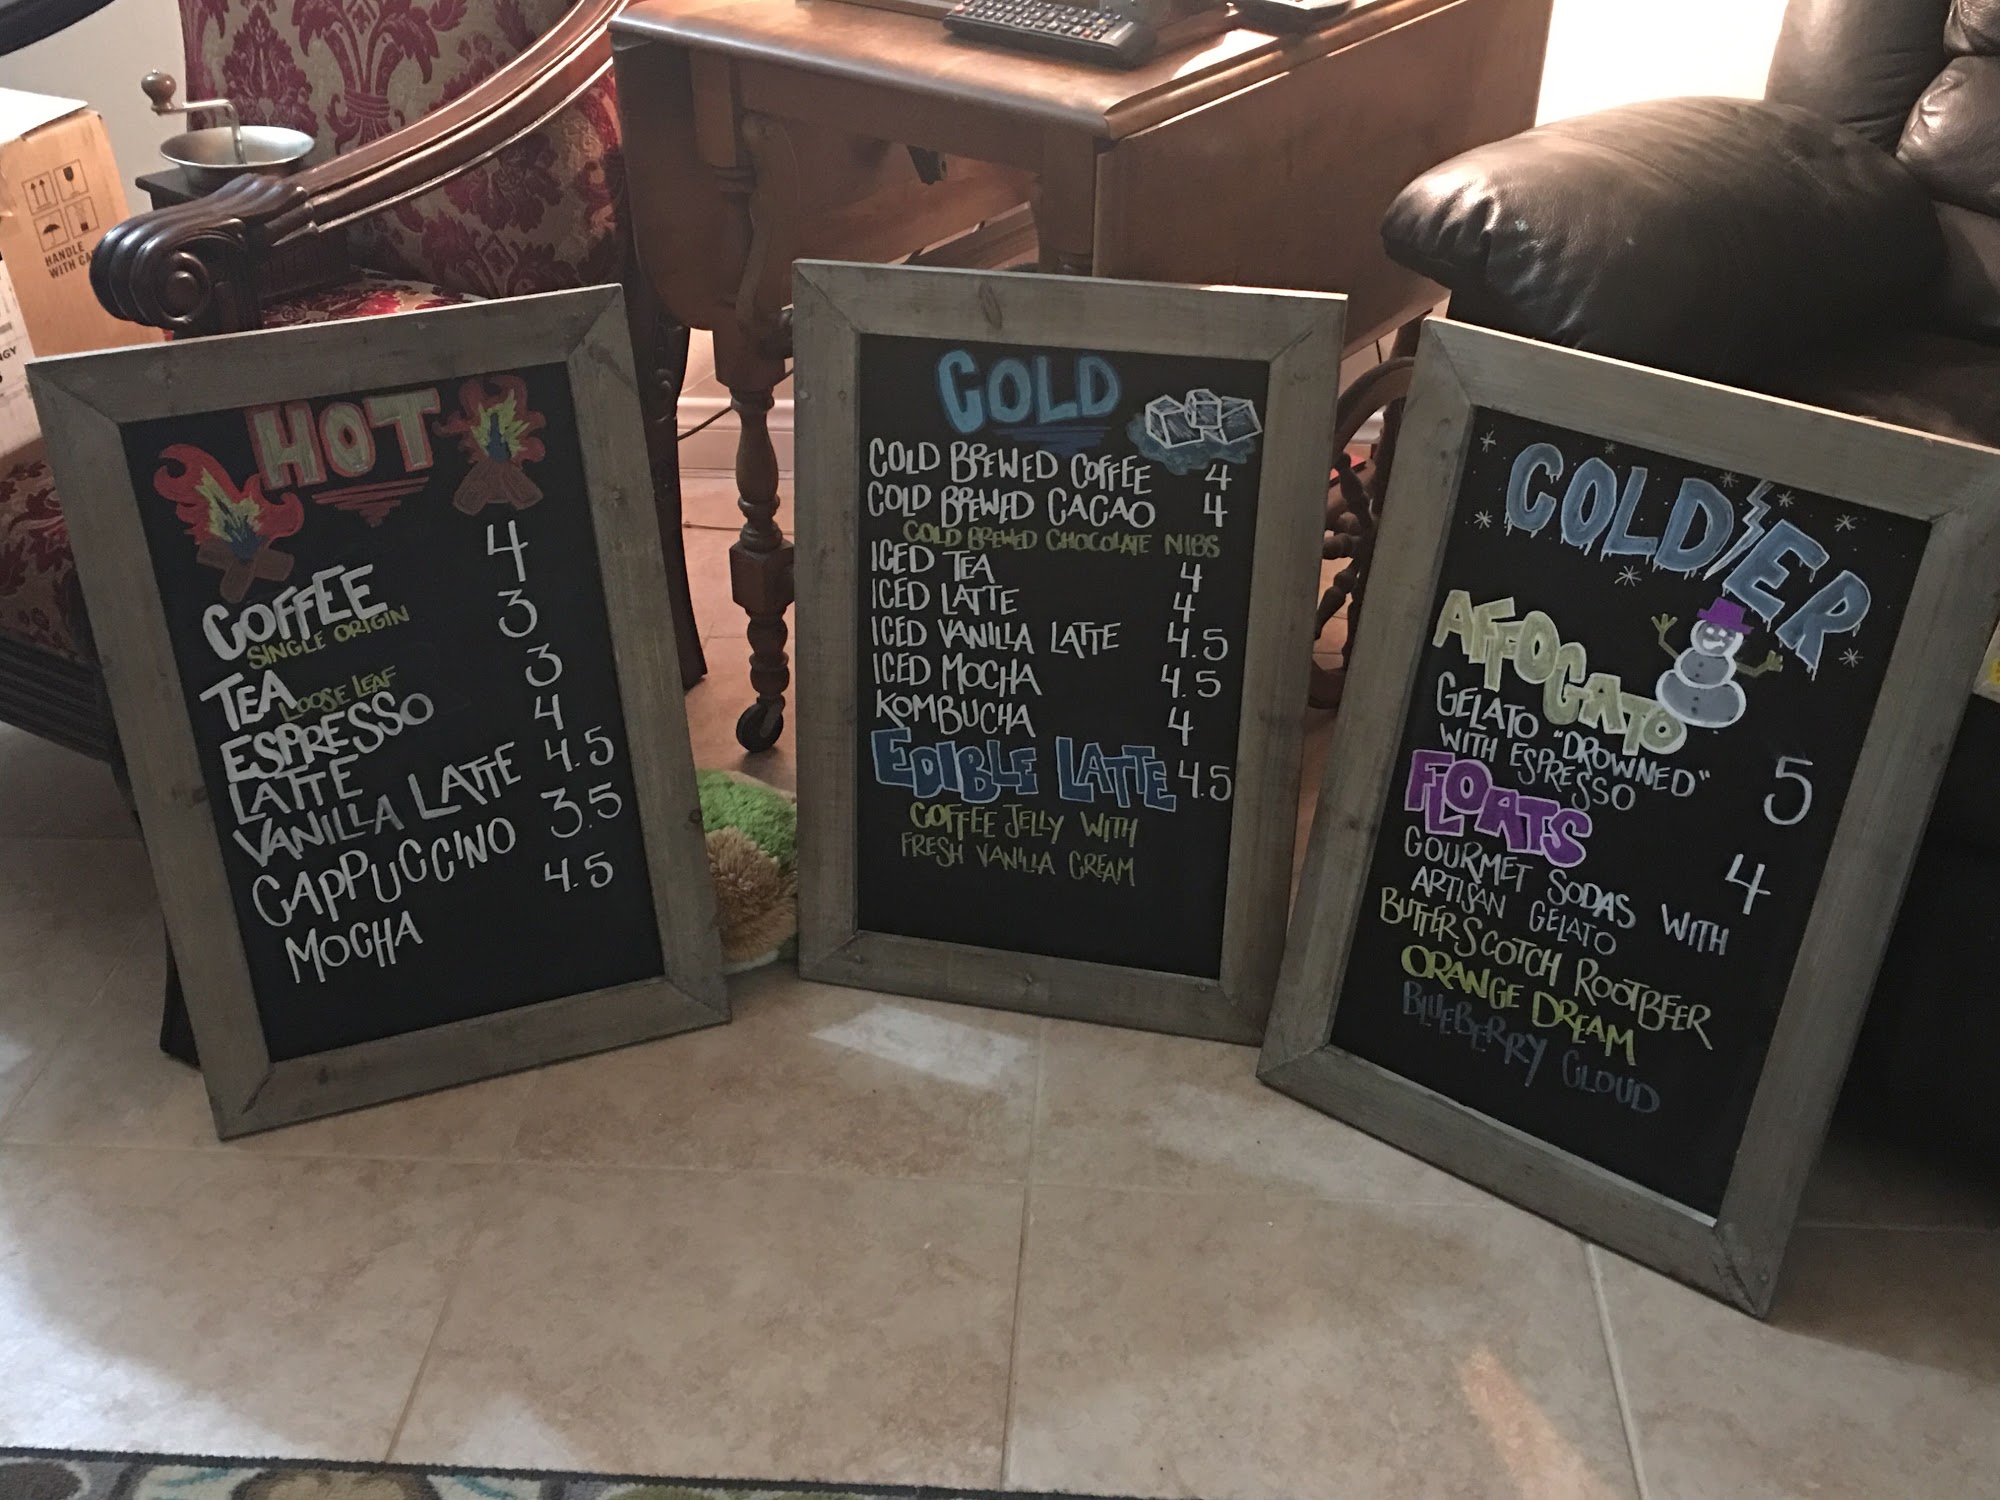 HANDLE
WITH CA
HOT
COFFEE 4
SINGLE ORIGIN
TEA LOOSE LEAF 3
ESPRESSO 3
LATTE 4
VANILLA LATTE 4.5
CAPPUCCINO 3.5
MOCHA 4.5
COLD
COLD BREWED COFFEE 4
COLD BREWED CACAO 4
COLD BREWED CHOCOLATE NIBS
ICED TEA 4
ICED LATTE 4
ICED VANILLA LATTE 4.5
ICED MOCHA 4.5
KOMBUCHA 4
EDIBLE LATTE 4.5
COFFEE JELLY WITH
FRESH VANILLA CREAM
COLD'ER
AFFOGATO
GELATO "DROWNED"
WITH ESPRESSO 5
FLOATS 4
GOURMET SODAS WITH
ARTISAN GELATO
BUTTERSCOTCH ROOTBEER
ORANGE DREAM
BLUEBERRY CLOUD